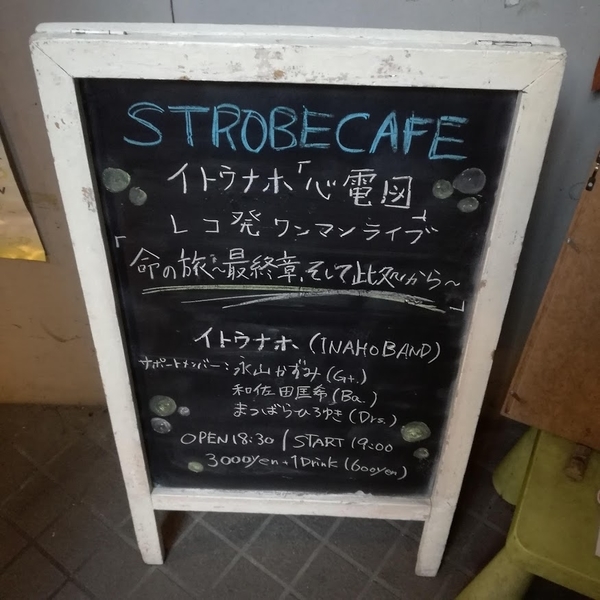 STROBECAFE
イトウナホ「心電図」
レコ発ワンマンライブ
「命の旅〜最終章、そして此処から〜」
イトウナホ (INAHO BAND)
サポートメンバー：永山かずみ(Gt.)
和佐田匡希(Ba.)
まつばらひろゆき(Drs.)
OPEN 18:30 / START 19:00
3000yen+1Drink(600yen)